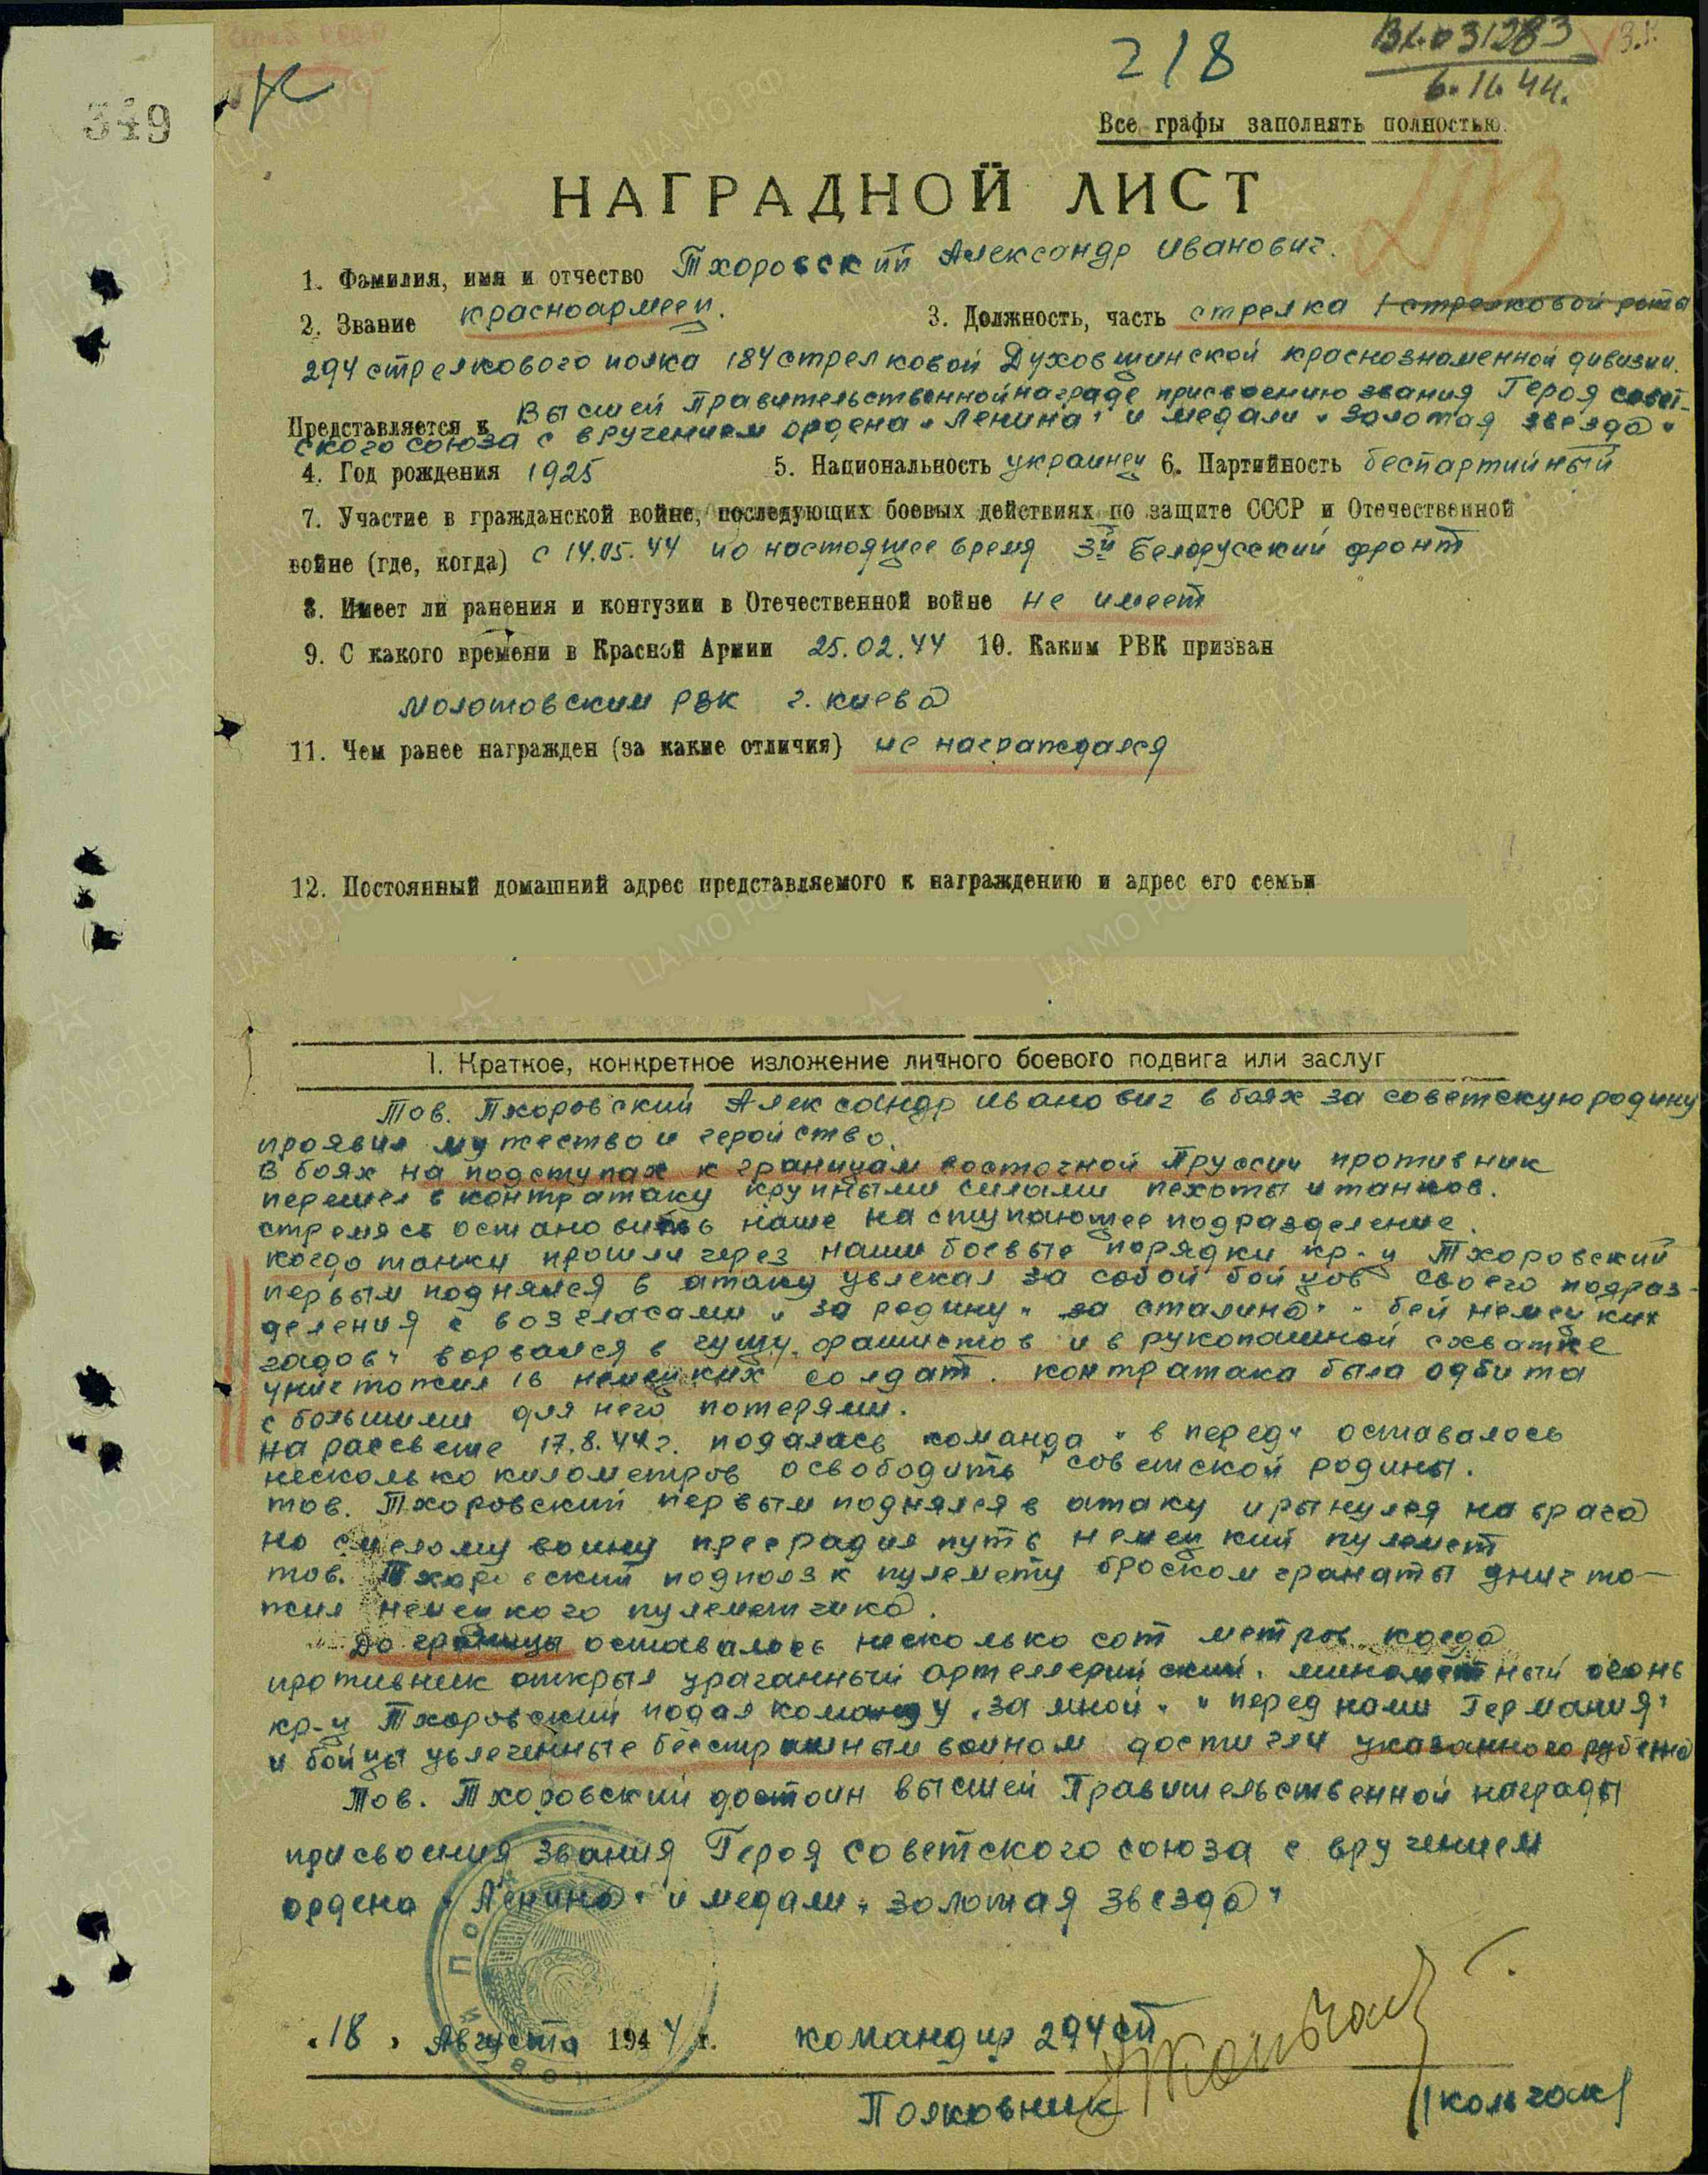 349
218
Вх.031283
6.11.44.
Все графы заполнять полностью
НАГРАДНОЙ ЛИСТ
1. Фамилия, имя и отчество Тхоровский Александр Иванович.
2. Звание красноармеец. 3. Должность, часть стрелка 1 стрелковой роты
294 стрелкового полка 184 стрелковой Духовщинской краснознаменной дивизии.
Представляется к Высшей Правительственной награде присвоению звания Героя совет-
ского союза с вручением ордена „Ленина" и медали „Золотая звезда"
4. Год рождения 1925 5. Национальность украинец 6. Партийность беспартийный
7. Участие в гражданской войне, последующих боевых действиях по защите СССР и Отечественной
войне (где, когда) с 14.05.44 по настоящее время 3й Белорусский фронт
8. Имеет ли ранения и контузии в Отечественной войне не имеет
9. С какого времени в Красной Армии 25.02.44 10. Каким РВК призван
Молотовским РВК г. Киева
11. Чем ранее награжден (за какие отличия) не награждался
12. Постоянный домашний адрес представляемого к награждению и адрес его семьи
1. Краткое, конкретное изложение личного боевого подвига или заслуг
Тов. Тхоровский Александр Иванович в боях за советскую родину
проявил мужество и геройство.
В боях на подступах к границам восточной Пруссии противник
перешел в контратаку крупными силами пехоты и танков.
стремясь остановить наше наступающее подразделение.
когда танки прошли через наши боевые порядки кр-ц Тхоровский
первым поднялся в атаку увлекая за собой бойцов своего подраз-
деления с возгласами „за родину" за сталина" „бей немецких
гадов" ворвался в гущу фашистов и в рукопашной схватке
уничтожил 16 немецких солдат. контратака была одбита
с большими для него потерями.
на рассвете 17.8.44г. подалась команда „в перед" оставалось
несколько километров освободить советской родины.
тов. Тхоровский первым поднялся в атаку и рынулся на врага
но смелому воину преградил путь немецкий пулемет
тов. Тхоровский подполз к пулемету броском гранаты уничто-
жил немецкого пулеметчика.
До границы оставалось несколько сот метров когда
противник открыл ураганный артеллерийский, минометный огонь
кр-ц Тхоровский подал команду „за мной" „перед нами Германия"
и бойцы увлеченные бесстрашным воином достигли указанного рубежа
Тов. Тхоровский достоин высшей Правительственной награды
присвоения звания Героя советского союза с вручением
ордена „Ленина" и медали „золотая звезда"
„18" Августа 1944 г. командир 294 сп
Полковник /кольчак/